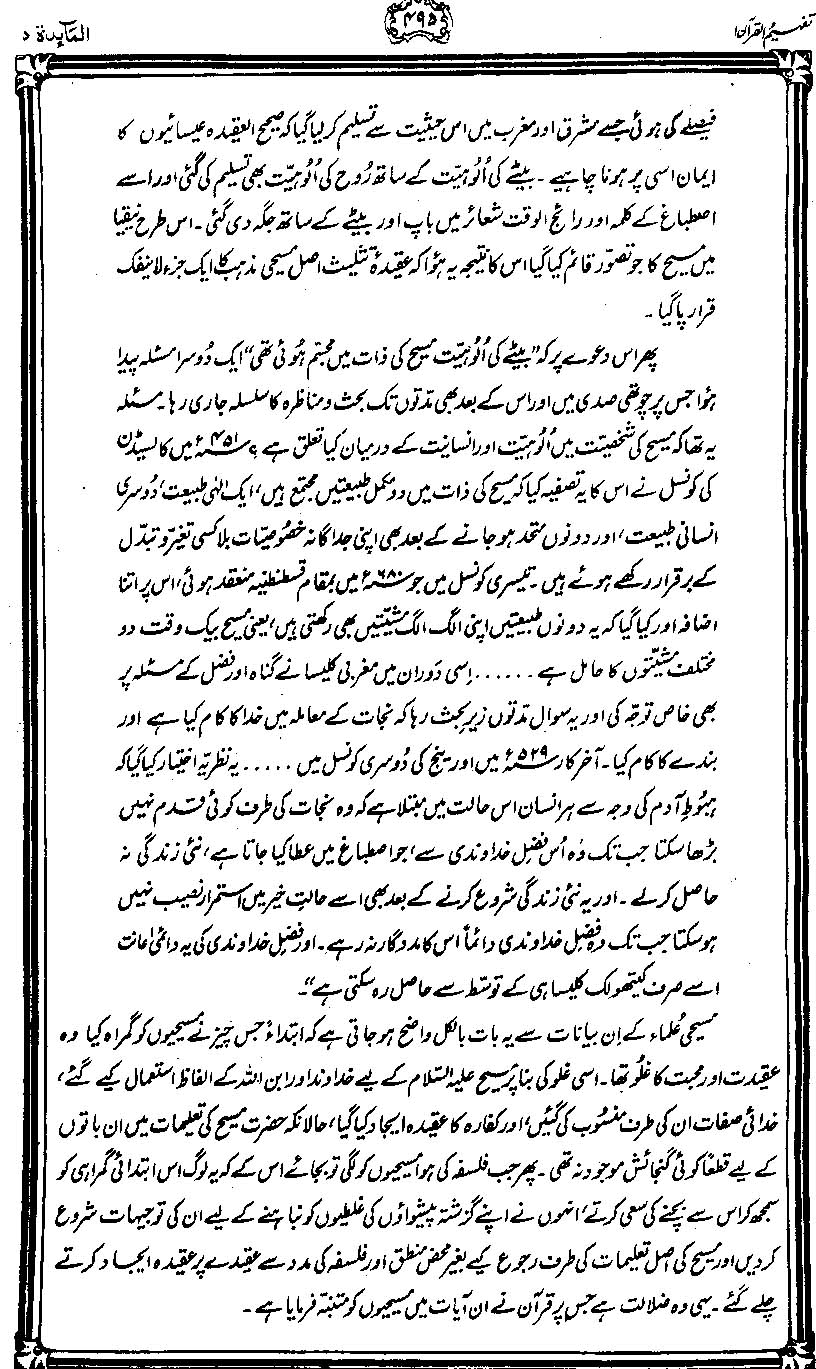 تفہیم القرآن ۱
۴۹۵
المآئدۃ ۵
فیصلے کی ہوئی جسے مشرق اور مغرب میں اس حیثیت سے تسلیم کر لیا گیا کہ صحیح العقیدہ عیسائیوں کا
ایمان اسی پر ہونا چاہیے ۔ بیٹے کی اُلُوہیّت کے ساتھ رُوح کی اُلُوہیّت بھی تسلیم کی گئی اور اسے
اصطباغ کے کلمہ اور رائج الوقت شعائر میں باپ اور بیٹے کے ساتھ جگہ دی گئی ۔ اس طرح نیقیا
میں مسیح کا جو تصوّر قائم کیا گیا اس کا نتیجہ یہ ہُوا کہ عقیدۂ تثلیث اصل مسیحی مذہب کا ایک جزء لا ینفک
قرار پا گیا ۔
پھر اس دعوے پر کہ ”بیٹے کی اُلُوہیّت مسیح کی ذات میں مجسّم ہُوئی تھی“ ایک دُوسرا مسئلہ پیدا
ہُوا جس پر چوتھی صدی میں اور اس کے بعد بھی مدّتوں تک بحث و مناظرہ کا سلسلہ جاری رہا۔ مسئلہ
یہ تھا کہ مسیح کی شخصیّت میں اُلُوہیّت اور انسانیت کے درمیان کیا تعلق ہے ؟ ۴۵۱؁ء میں کالسیڈن
کی کونسل نے اس کا یہ تصفیہ کیا کہ مسیح کی ذات میں دو مکمل طبیعتیں مجتمع ہیں، ایک الٰہی طبیعت، دُوسری
انسانی طبیعت، اور دونوں متحد ہو جانے کے بعد بھی اپنی جداگانہ خصُوصیّات بلا کسی تغیّر و تبدّل
کے برقرار رکھے ہوئے ہیں ۔ تیسری کونسل میں جو ۶۸۰؁ء میں بمقام قسطنطنیہ منعقد ہوئی، اس پر اتنا
اضافہ اور کیا گیا کہ یہ دونوں طبیعتیں اپنی الگ الگ مشیّتیں بھی رکھتی ہیں، یعنی مسیح بیک وقت دو
مختلف مشیّتوں کا حامل ہے ۔۔۔۔۔۔ اِسی دَوران میں مغربی کلیسا نے گناہ اور فضل کے مسئلہ پر
بھی خاص توجّہ کی اور یہ سوال مدتوں زیرِ بحث رہا کہ نجات کے معاملہ میں خدا کا کام کیا ہے اور
بندے کا کام کیا ۔ آخر کار ۵۲۹؁ء میں اورینج کی دُوسری کونسل میں ۔۔۔۔۔ یہ نظریّہ اختیار کیا گیا کہ
ہبُوطِ آدم کی وجہ سے ہر انسان اس حالت میں مبتلا ہے کہ وہ نجات کی طرف کوئی قدم نہیں
بڑھا سکتا جب تک وُہ اُس فضلِ خداوندی سے، جو اصطباغ میں عطا کیا جاتا ہے، نئی زندگی نہ
حاصل کر لے ۔ اور یہ نئی زندگی شروع کرنے کے بعد بھی اسے حالتِ خیر میں استمرار نصیب نہیں
ہو سکتا جب تک وہ فضلِ خداوندی دائماً اس کا مددگار نہ رہے ۔ اور فضلِ خداوندی کی یہ دائمی اعانت
اسے صرف کیتھولک کلیسا ہی کے توسّط سے حاصل رہ سکتی ہے“۔
مسیحی عُلماء کے اِن بیانات سے یہ بات بالکل واضح ہو جاتی ہے کہ ابتداءً جس چیز نے مسیحیوں کو گمراہ کیا وہ
عقیدت اور محبت کا غلُو تھا ۔ اسی غلو کی بنا پر مسیح علیہ السّلام کے لیے خداوند اور ابن اللہ کے الفاظ استعمال کیے گئے،
خدائی صفات ان کی طرف منسُوب کی گئیں، اور کفارہ کا عقیدہ ایجاد کیا گیا، حالانکہ حضرت مسیح کی تعلیمات میں ان باتوں
کے لیے قطعاً کوئی گنجائش موجود نہ تھی ۔ پھر جب فلسفہ کی ہوا مسیحیوں کو لگی تو بجائے اس کے کہ یہ لوگ اس ابتدائی گمراہی کو
سمجھ کر اس سے بچنے کی سعی کرتے، انہوں نے اپنے گزشتہ پیشواؤں کی غلطیوں کو نباہنے کے لیے ان کی توجیہات شروع
کر دیں اور مسیح کی اصل تعلیمات کی طرف رجوع کیے بغیر محض منطق اور فلسفہ کی مدد سے عقیدے پر عقیدہ ایجاد کرتے
چلے گئے ۔ یہی وہ ضلالت ہے جس پر قرآن نے ان آیات میں مسیحیوں کو متنبّہ فرمایا ہے ۔